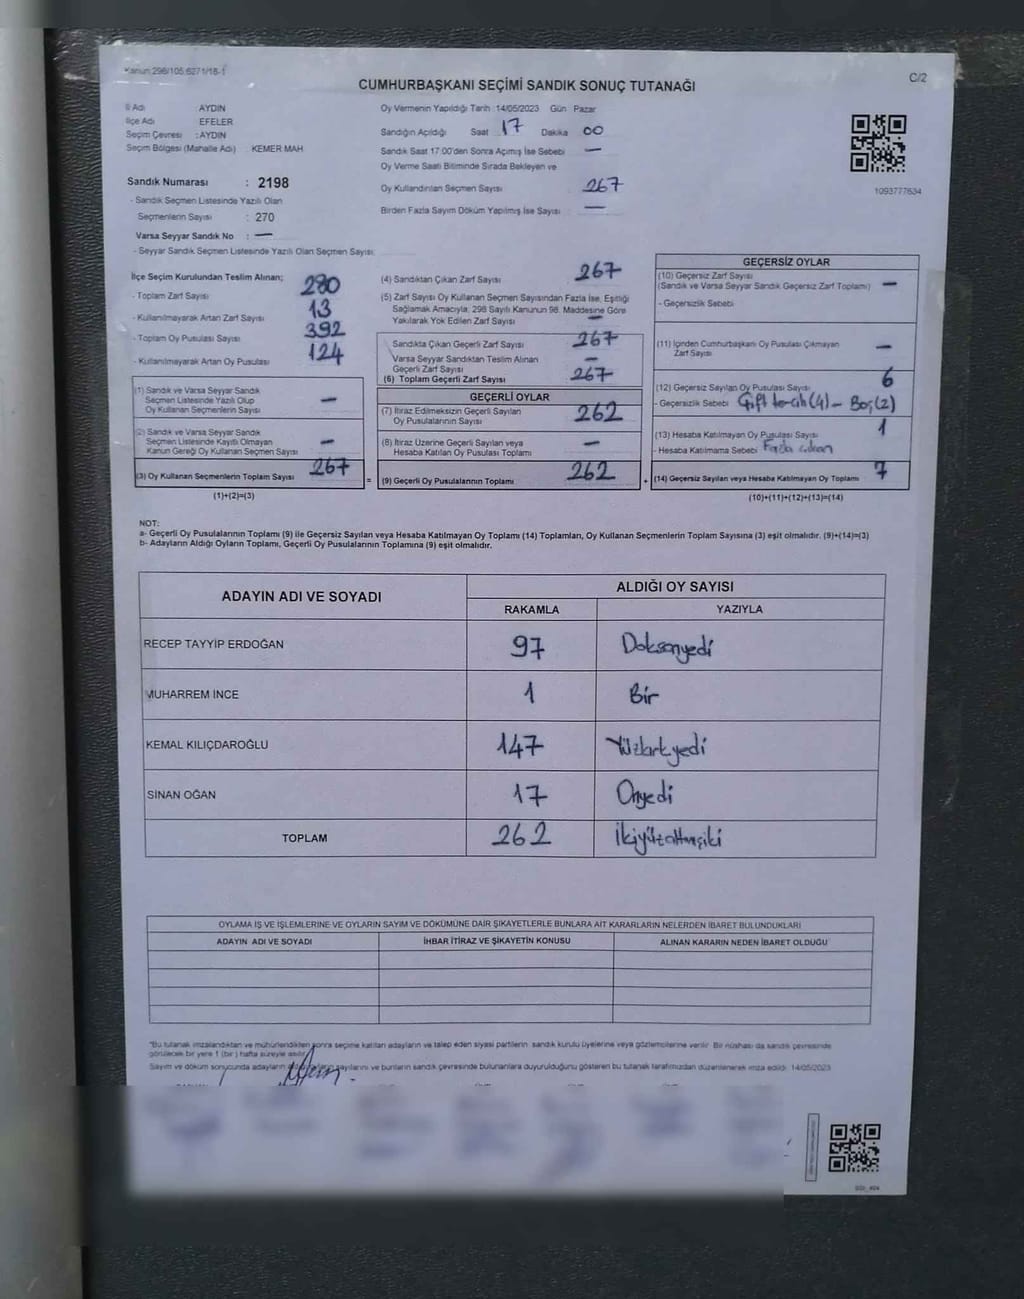 Kanun 296/105,6271/18-1
C/2
CUMHURBAŞKANI SEÇİMİ SANDIK SONUÇ TUTANAĞI
İl Adı AYDIN
İlçe Adı EFELER
Seçim Çevresi : AYDIN
Seçim Bölgesi (Mahalle Adı) KEMER MAH
Sandık Numarası : 2198
- Sandık Seçmen Listesinde Yazılı Olan
Seçmenlerin Sayısı : 270
Varsa Seyyar Sandık No : —
- Seyyar Sandık Seçmen Listesinde Yazılı Olan Seçmen Sayısı:
Oy Vermenin Yapıldığı Tarih :14/05/2023 Gün Pazar
Sandığın Açıldığı Saat 17 Dakika 00
Sandık Saat 17:00'den Sonra Açımış İse Sebebi —
Oy Verme Saati Bitiminde Sırada Bekleyen ve
Oy Kullandırılan Seçmen Sayısı 267
Birden Fazla Sayım Döküm Yapılmış İse Sayısı —
1093777634
İlçe Seçim Kurulundan Teslim Alınan;
- Toplam Zarf Sayısı 280
- Kullanılmayarak Artan Zarf Sayısı 13
- Toplam Oy Pusulası Sayısı 392
- Kullanılmayarak Artan Oy Pusulası 124
(1) Sandık ve Varsa Seyyar Sandık
Seçmen Listesinde Yazılı Olup
Oy Kullanan Seçmenlerin Sayısı —
(2) Sandık ve Varsa Seyyar Sandık
Seçmen Listesinde Kayıtlı Olmayan
Kanun Gereği Oy Kullanan Seçmen Sayısı —
(3) Oy Kullanan Seçmenlerin Toplam Sayısı 267
(1)+(2)=(3)
(4) Sandıktan Çıkan Zarf Sayısı 267
(5) Zarf Sayısı Oy Kullanan Seçmen Sayısından Fazla İse, Eşitliği
Sağlamak Amacıyla, 298 Sayılı Kanunun 98. Maddesine Göre
Yakılarak Yok Edilen Zarf Sayısı —
Sandıkta Çıkan Geçerli Zarf Sayısı 267
Varsa Seyyar Sandıktan Teslim Alınan
Geçerli Zarf Sayısı —
(6) Toplam Geçerli Zarf Sayısı 267
GEÇERLİ OYLAR
(7) İtiraz Edilmeksizin Geçerli Sayılan
Oy Pusulalarının Sayısı 262
(8) İtiraz Üzerine Geçerli Sayılan veya
Hesaba Katılan Oy Pusulası Toplamı —
= (9) Geçerli Oy Pusulalarının Toplamı 262
GEÇERSİZ OYLAR
(10) Geçersiz Zarf Sayısı
(Sandık ve Varsa Seyyar Sandık Geçersiz Zarf Toplamı) —
- Geçersizlik Sebebi
(11) İçinden Cumhurbaşkanı Oy Pusulası Çıkmayan
Zarf Sayısı —
(12) Geçersiz Sayılan Oy Pusulası Sayısı 6
- Geçersizlik Sebebi Çift tercih(4) - Boş(2)
(13) Hesaba Katılmayan Oy Pusulası Sayısı 1
- Hesaba Katılmama Sebebi Fazla çıkan
+ (14) Geçersiz Sayılan veya Hesaba Katılmayan Oy Toplamı 7
(10)+(11)+(12)+(13)=(14)
NOT:
a- Geçerli Oy Pusulalarının Toplamı (9) ile Geçersiz Sayılan veya Hesaba Katılmayan Oy Toplamı (14) Toplamları, Oy Kullanan Seçmenlerin Toplam Sayısına (3) eşit olmalıdır. (9)+(14)=(3)
b- Adayların Aldığı Oyların Toplamı, Geçerli Oy Pusulalarının Toplamına (9) eşit olmalıdır.
ADAYIN ADI VE SOYADI ALDIĞI OY SAYISI
RAKAMLA YAZIYLA
RECEP TAYYİP ERDOĞAN 97 Doksanyedi
MUHARREM İNCE 1 Bir
KEMAL KILIÇDAROĞLU 147 Yüzkırkyedi
SİNAN OĞAN 17 Onyedi
TOPLAM 262 İkiyüzaltmışiki
OYLAMA İŞ VE İŞLEMLERİNE VE OYLARIN SAYIM VE DÖKÜMÜNE DAİR ŞİKAYETLERLE BUNLARA AİT KARARLARIN NELERDEN İBARET BULUNDUKLARI
ADAYIN ADI VE SOYADI İHBAR İTİRAZ VE ŞİKAYETİN KONUSU ALINAN KARARIN NEDEN İBARET OLDUĞU
"Bu tutanak imzalandıktan ve mühürlendikten sonra seçime katılan adayların ve talep eden siyasi partilerin sandık kurulu üyelerine veya gözlemcilerine verilir. Bir nüshası da sandık çevresinde
görülecek bir yere 1 (bir) hafta süreyle asılır.
Sayım ve döküm sonucunda adayların sayılarını ve bunların sandık çevresinde bulunanlara duyurulduğunu gösteren bu tutanak tarafımızdan düzenlenerek imza edildi. 14/05/2023